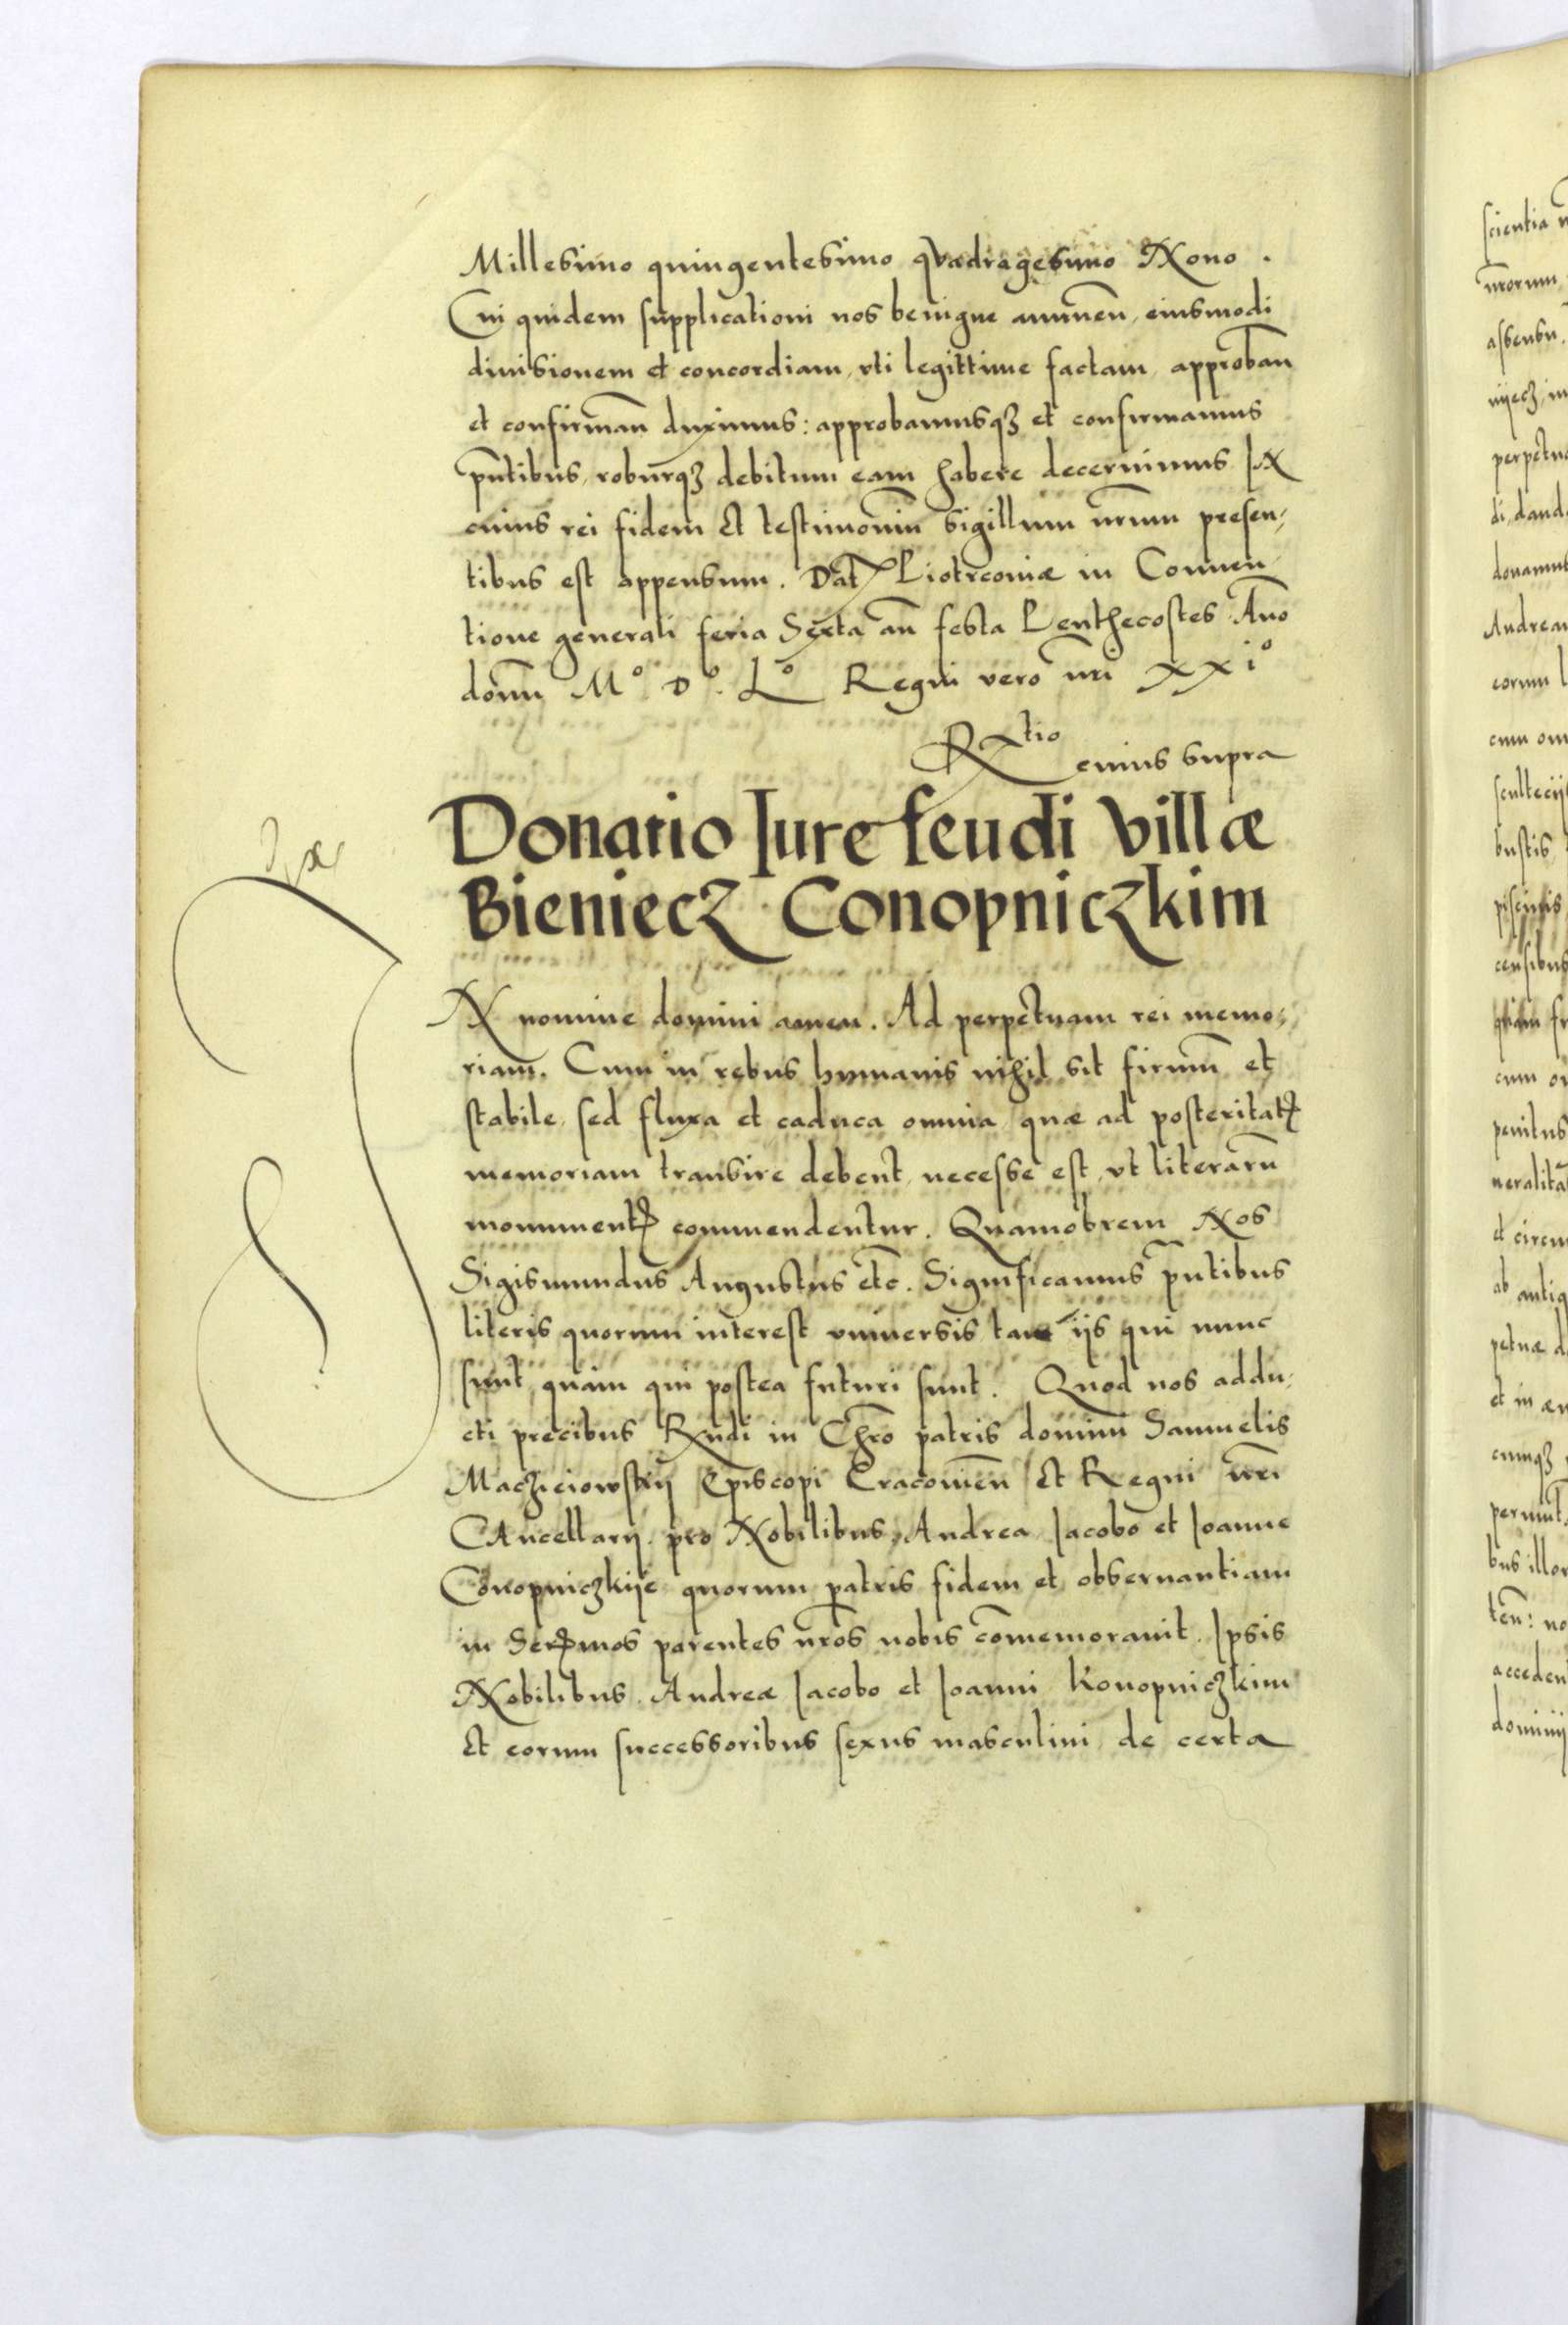 Millesimo quingentesimo qvadragesimo Nono .
Cui quidem supplicationi nos benigne annuen̄, eiusmodi
diuisionem et concordiam, vti legittime factam, approban̄
et confirman̄ duximus: approbamusqꝫ et confirmamus
pn̄tibus, roburqꝫ debitum eam habere decernimus IN
cuius rei fidem Et testimoniū sigillum nr̄um presen⸗
tibus est appensum. Datꝭ Piotrcoviæ in Conuen⸗
tione generali feria Sexta an̄ festa Penthecostes Ano
domi M° D° L° Regni vero nr̄i XXi°
Rtio cuius supra
Donatio Iure feudi villæ
Bieniecz Conopniczkim
IN nomine domini amen. Ad perpetuam rei memo⸗
riam. Cum in rebus humanis nihil sit firmū et
stabile, sed fluxa et caduca omnia, quæ ad posteritatꝭ
memoriam transire debent, necesse est, vt literarū
monumentꝭ commendentur. Quamobrem Nos
Sigismundus Augustus etc̄. Significamus pn̄tibus
literis quorum interest vniuersis, tam iis qui nunc
sunt, quàm qui postea futuri sunt. Quod nos addu⸗
cti precibus Rn̄di in Chr̄o patris domini Samuelis
Macziciowskij Ep̄iscopi Cracouien̄ Et Regni nr̄i
CAncellarij. pro Nobilibus, Andrea Iacobo et Ioanne
Conopniczkije quorum patris fidem et obseruantiam
in Serꝭmos parentes nr̄os nobis com̄emorauit. Ipsis
Nobilibus. Andreæ Iacobo et Ioanni Konopniczkim
Et eorum successoribus sexus masculini, de certa